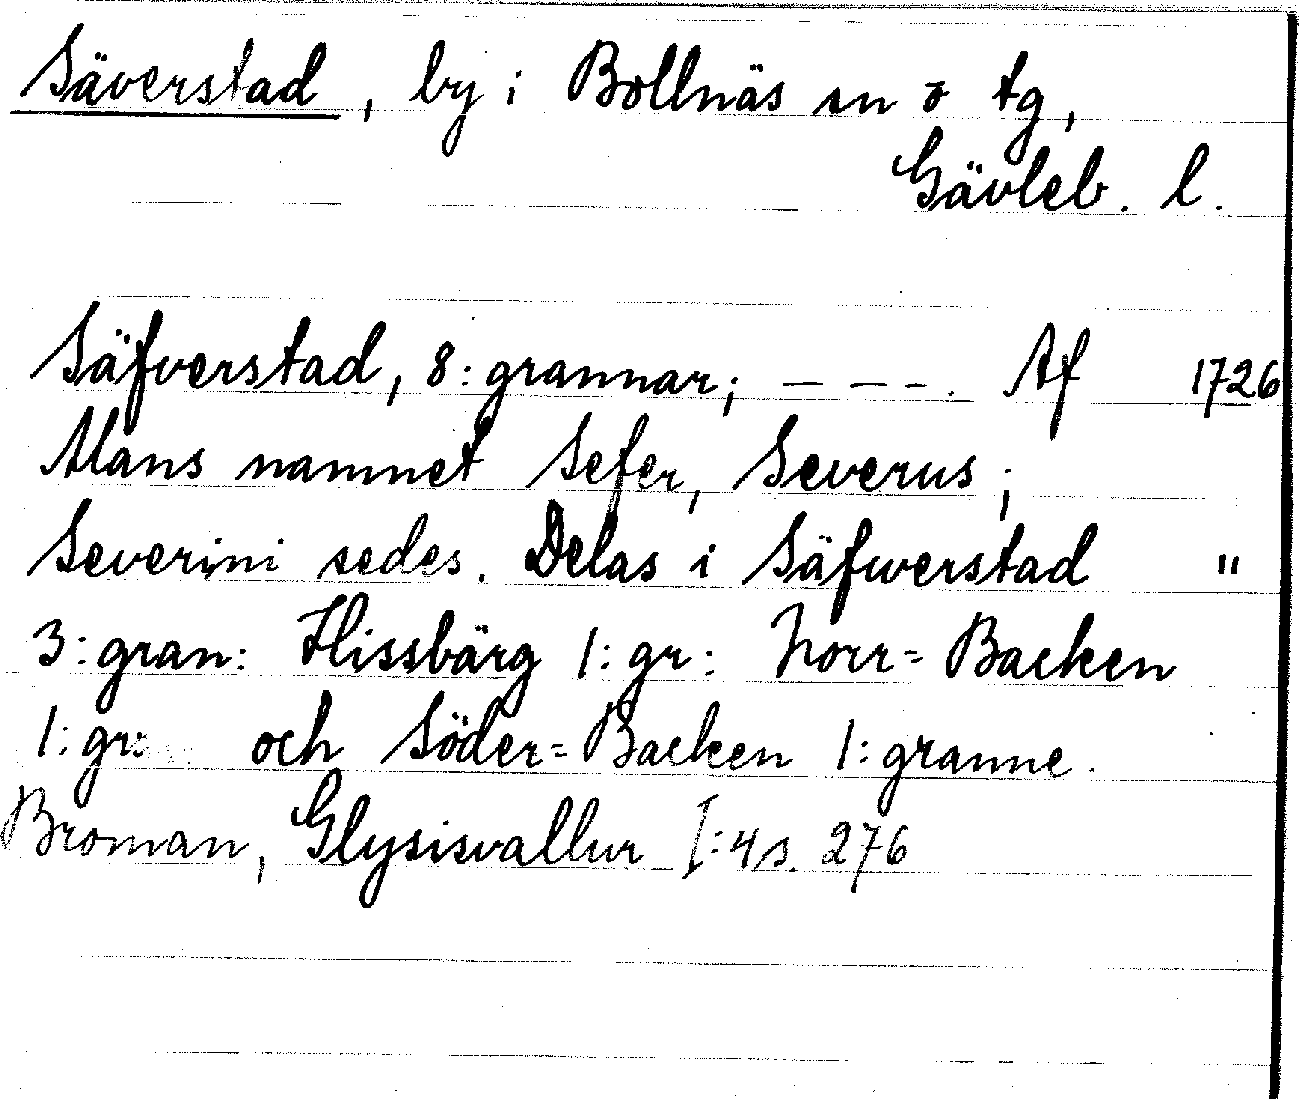 Säverstad, by i Bollnäs sn o tg,
Gävleb. l.
Säfverstad, 8: grannar; – – – . Af 1726
Mans namnet Sefer, Severus;
Severini sedes. Delas i Säfwerstad "
3: gran: Hissbärg 1: gr: Norr=Backen
1: gr: och Söder=Backen 1: granne.
Broman, Glysisvallur I:4 s. 276